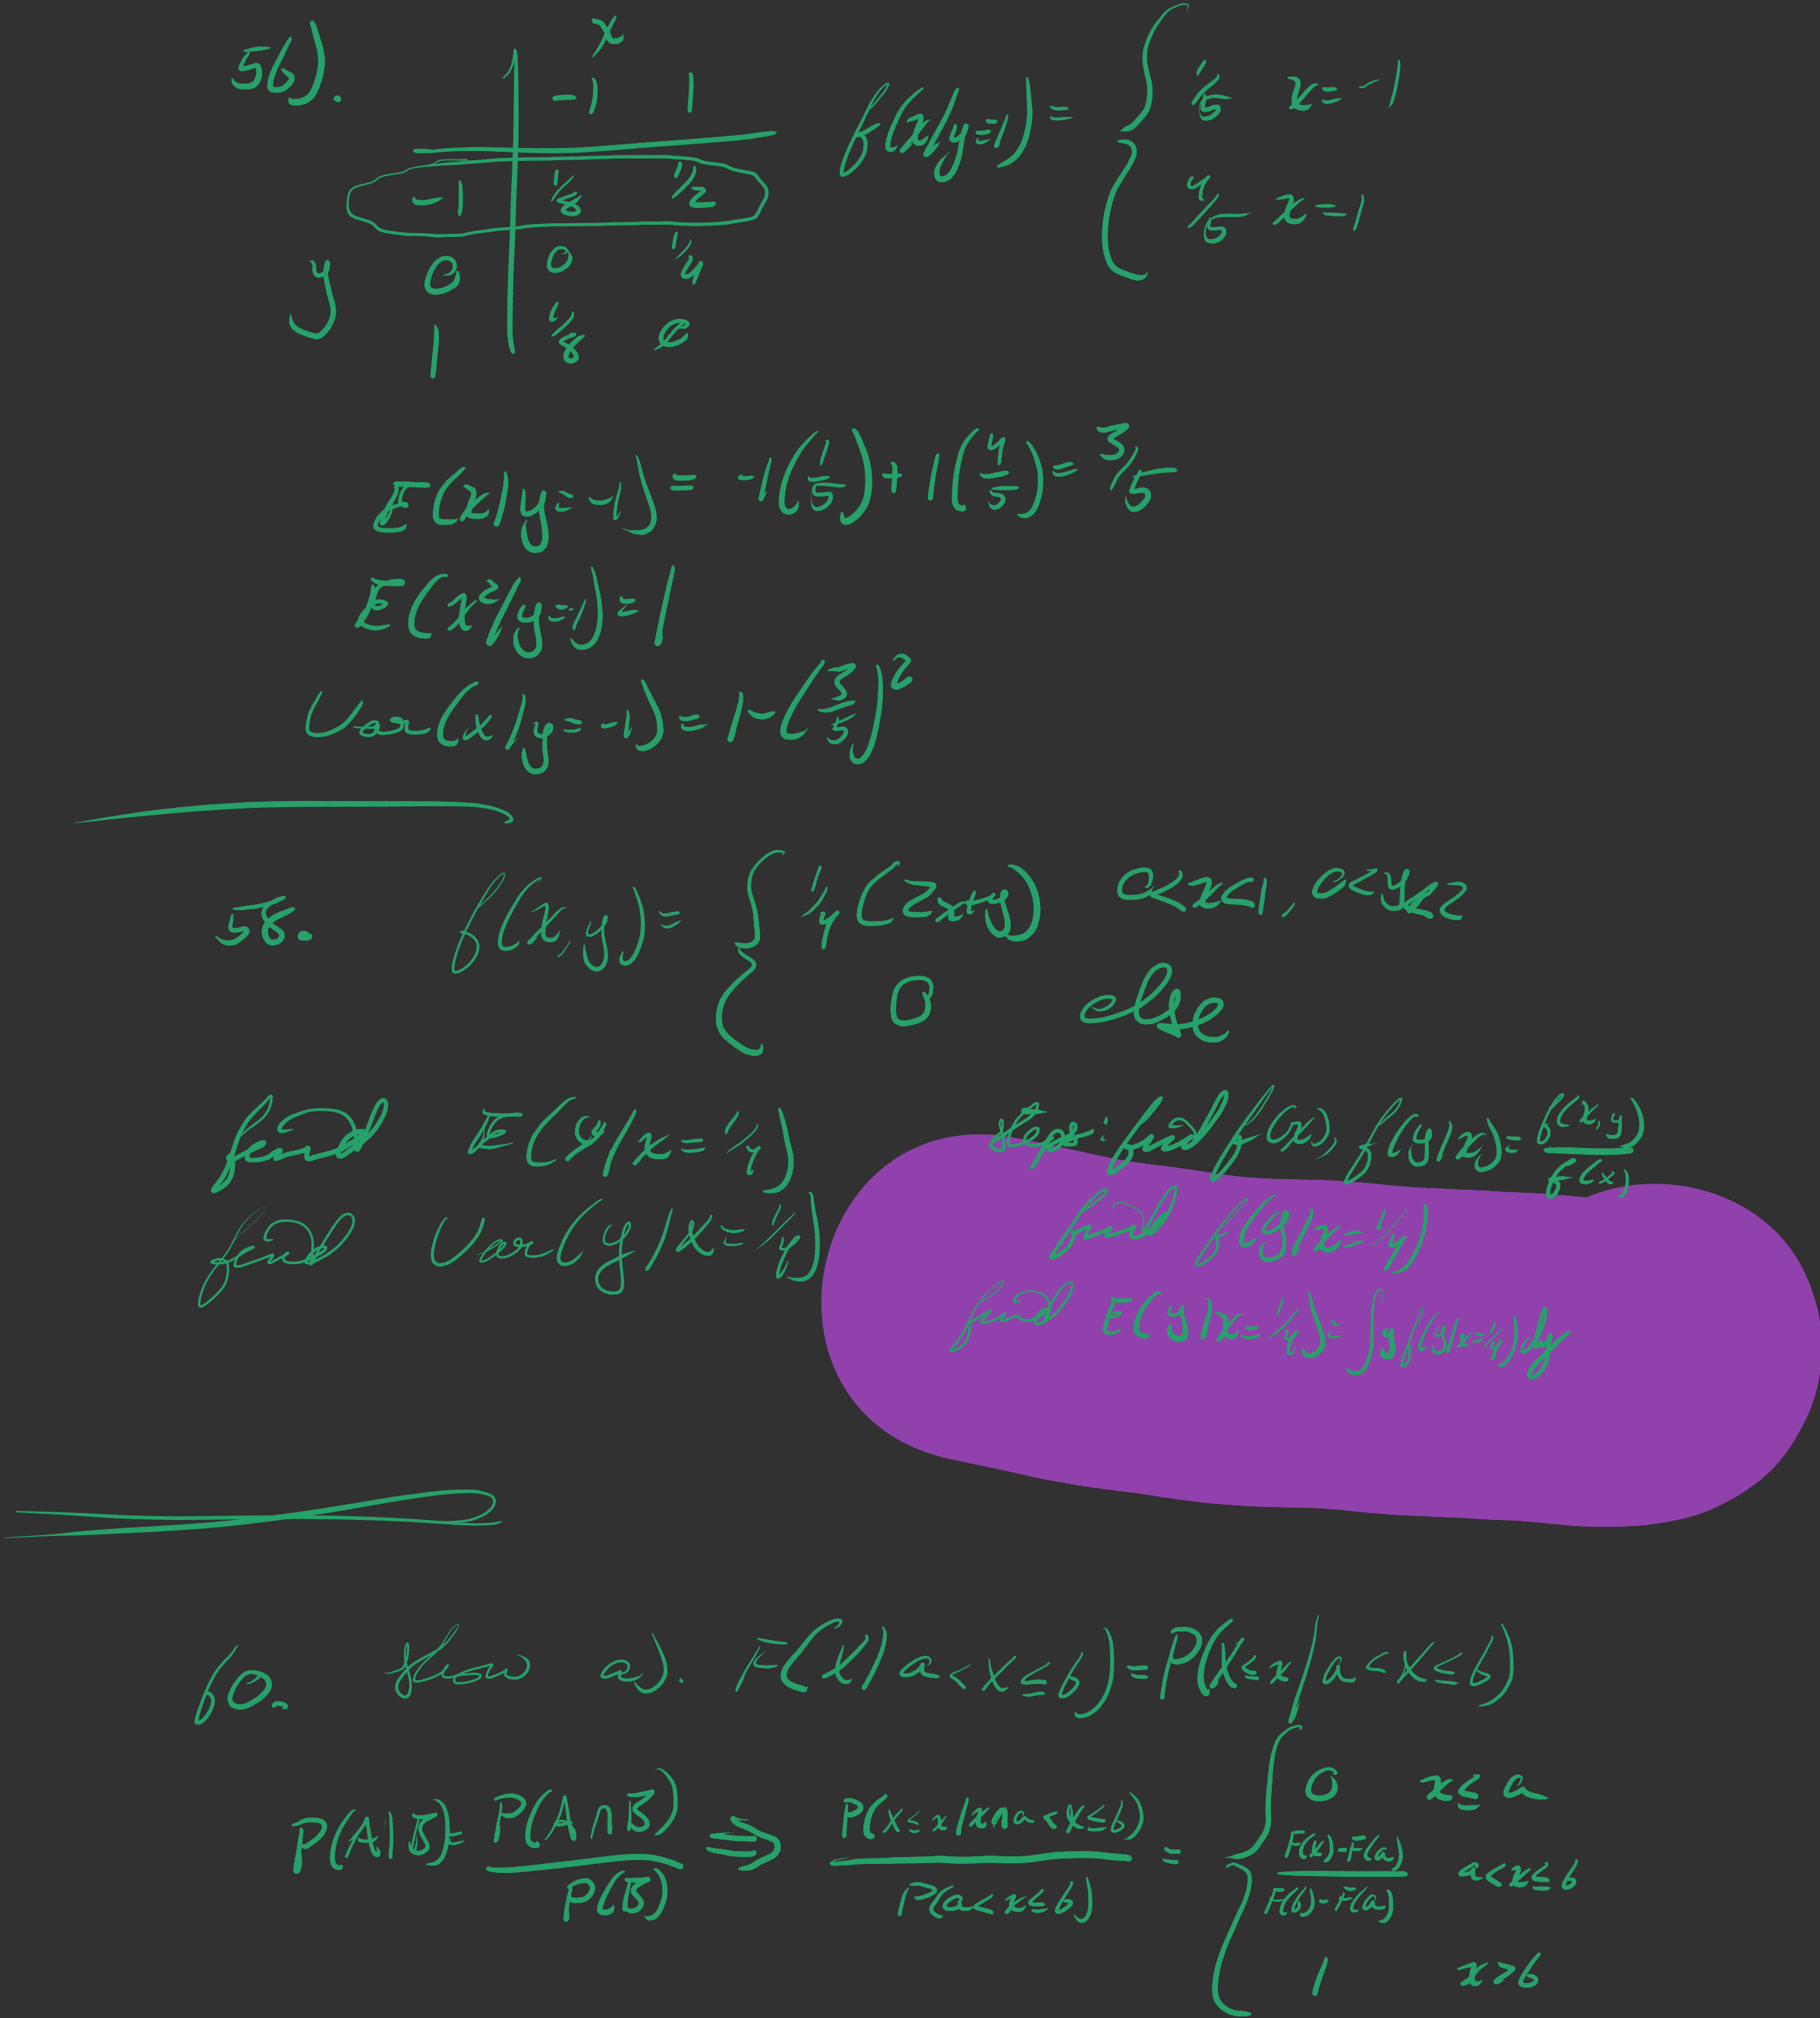 5(b).
x
-1 1
f(x|y=-1) = { 1/5 x = -1
4/5 x = 1
-1 1/8 1/2
y 0 0 1/4
1 1/8 0
E(x|y=-1) = -1(1/5) + 1(4/5) = 3/5
E(x²|y=-1) = 1
Var(x|y=-1) = 1-(3/5)²
58. f(x,y) = { 1/4(2x+y) 0<x<1, 0<y<2
0 else
find E(y|x=1/4)
find Var(y|x=1/4)
steps: find f(x), f(y|x) = f(x,y)/f(x)
find f(y|x=1/4)
find E(y|x=1/4) = ∫ y f(y|x=1/4) dy
60. a). F(x|a<X≤b) = P(X≤x|a<X≤b)
P(A|B) = P(A∩B)/P(B) ⇒ P(X≤x ∩ a<X≤b)/P(a<x≤b) = { 0 x≤a
F(x)-F(a)/F(b)-F(a) a<x≤b
1 x>b